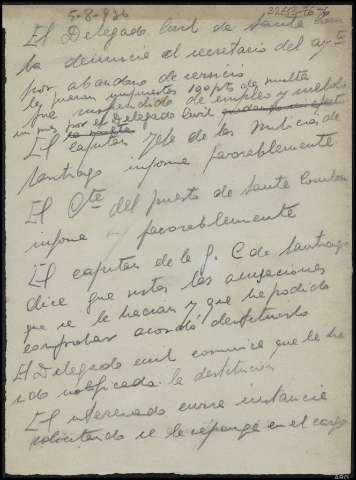 5-8-936
El Delegado Civil de Santa Com
ba denuncia al secretario del ayto
por abandono de servicio
le fueron impuestos 100 pts de multa
fue suspendido de empleo y sueldo
un mes por el Delegado Civil
El capitan Jefe de las Milicias de
Santiago informa favorablemente
El Cte del puesto de Santa Comba
informa favorablemente
El capitan de la g. C de Santiago
dice que vistas las acusaciones
que se le hacian y que ha podido
comprobar acordó destituirlo
El Delegado civil comunica que le ha
sido notificada la destitucion
El interesado cursa instancia
solicitando se le reponga en el cargo